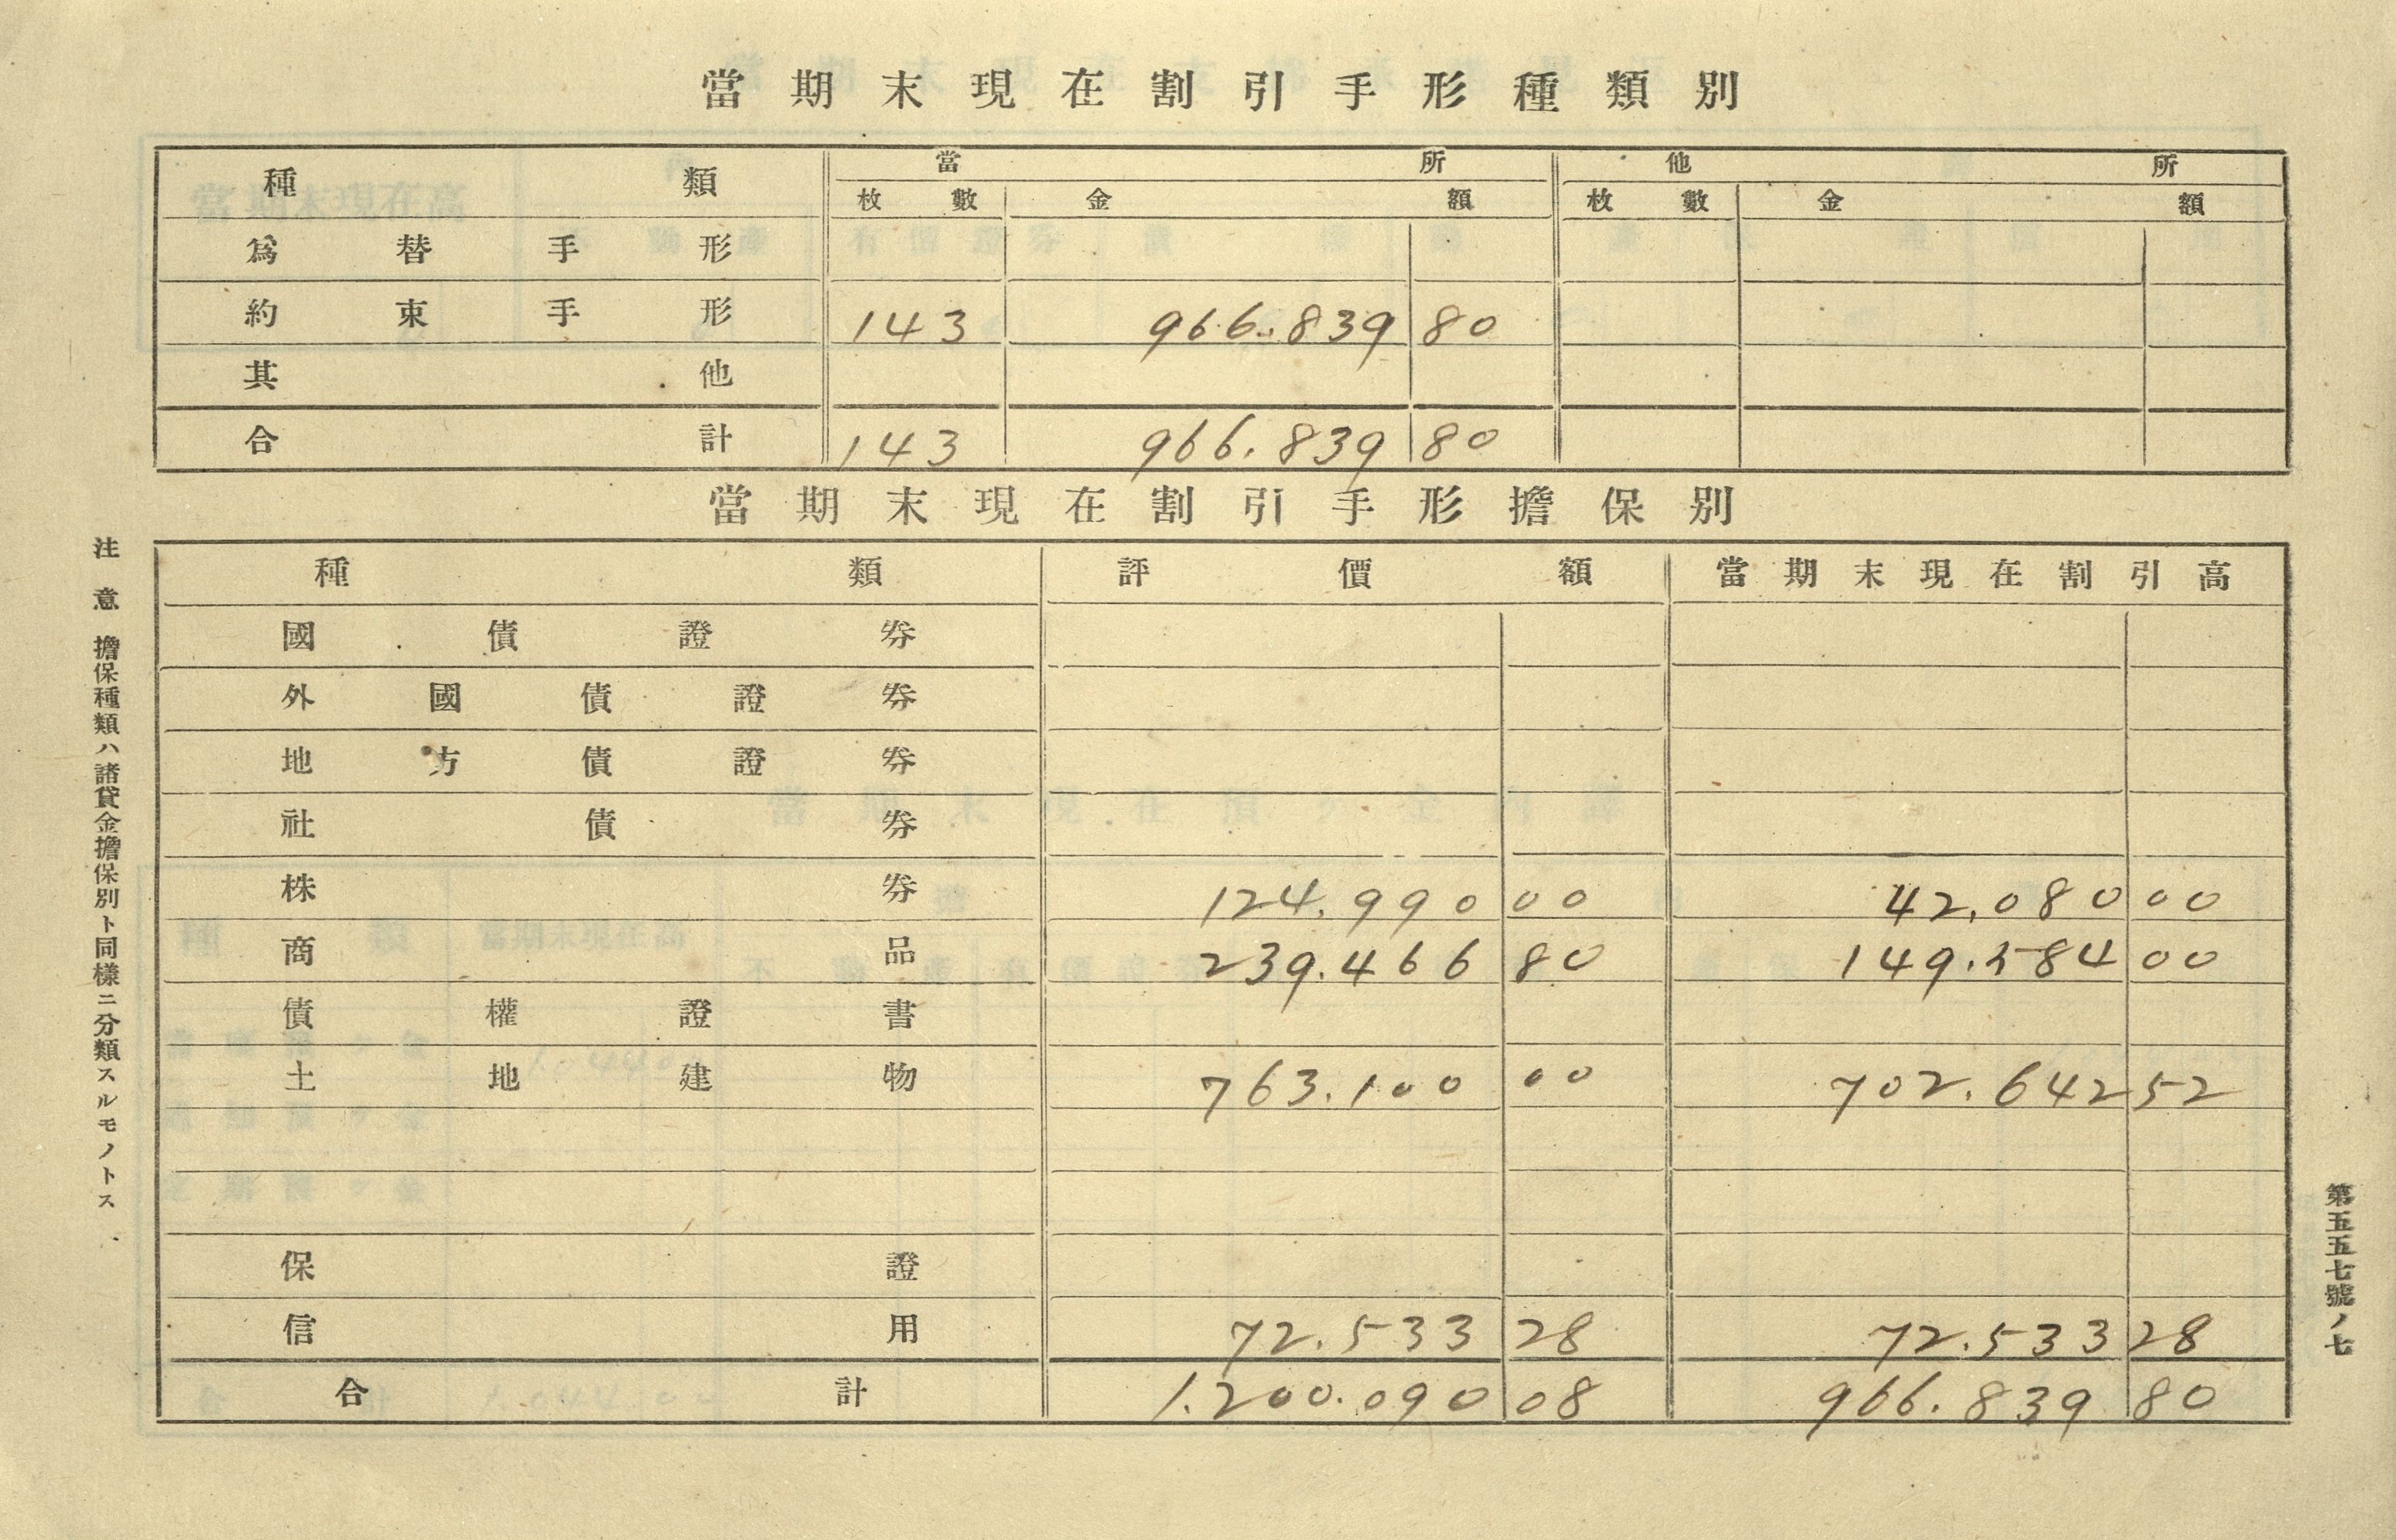 當期末現在割引手形種類別
種類 當所 他所
枚數 金額 枚數 金額
爲替手形
約束手形 143 966.839 80
其他
合計 143 966.839 80
當期末現在割引手形擔保別
種類 評價額 當期末現在割引高
國債證券
外國債證券
地方債證券
社債券
株券 124.990 00 42.080 00
商品 239.466 80 149.584 00
債權證書
土地建物 763.100 00 702.642 52
保證
信用 72.533 28 72.533 28
合計 1.200.090 08 966.839 80
注意 擔保種類ハ諸貸金擔保別ト同樣ニ分類スルモノトス
第五五七號ノ七